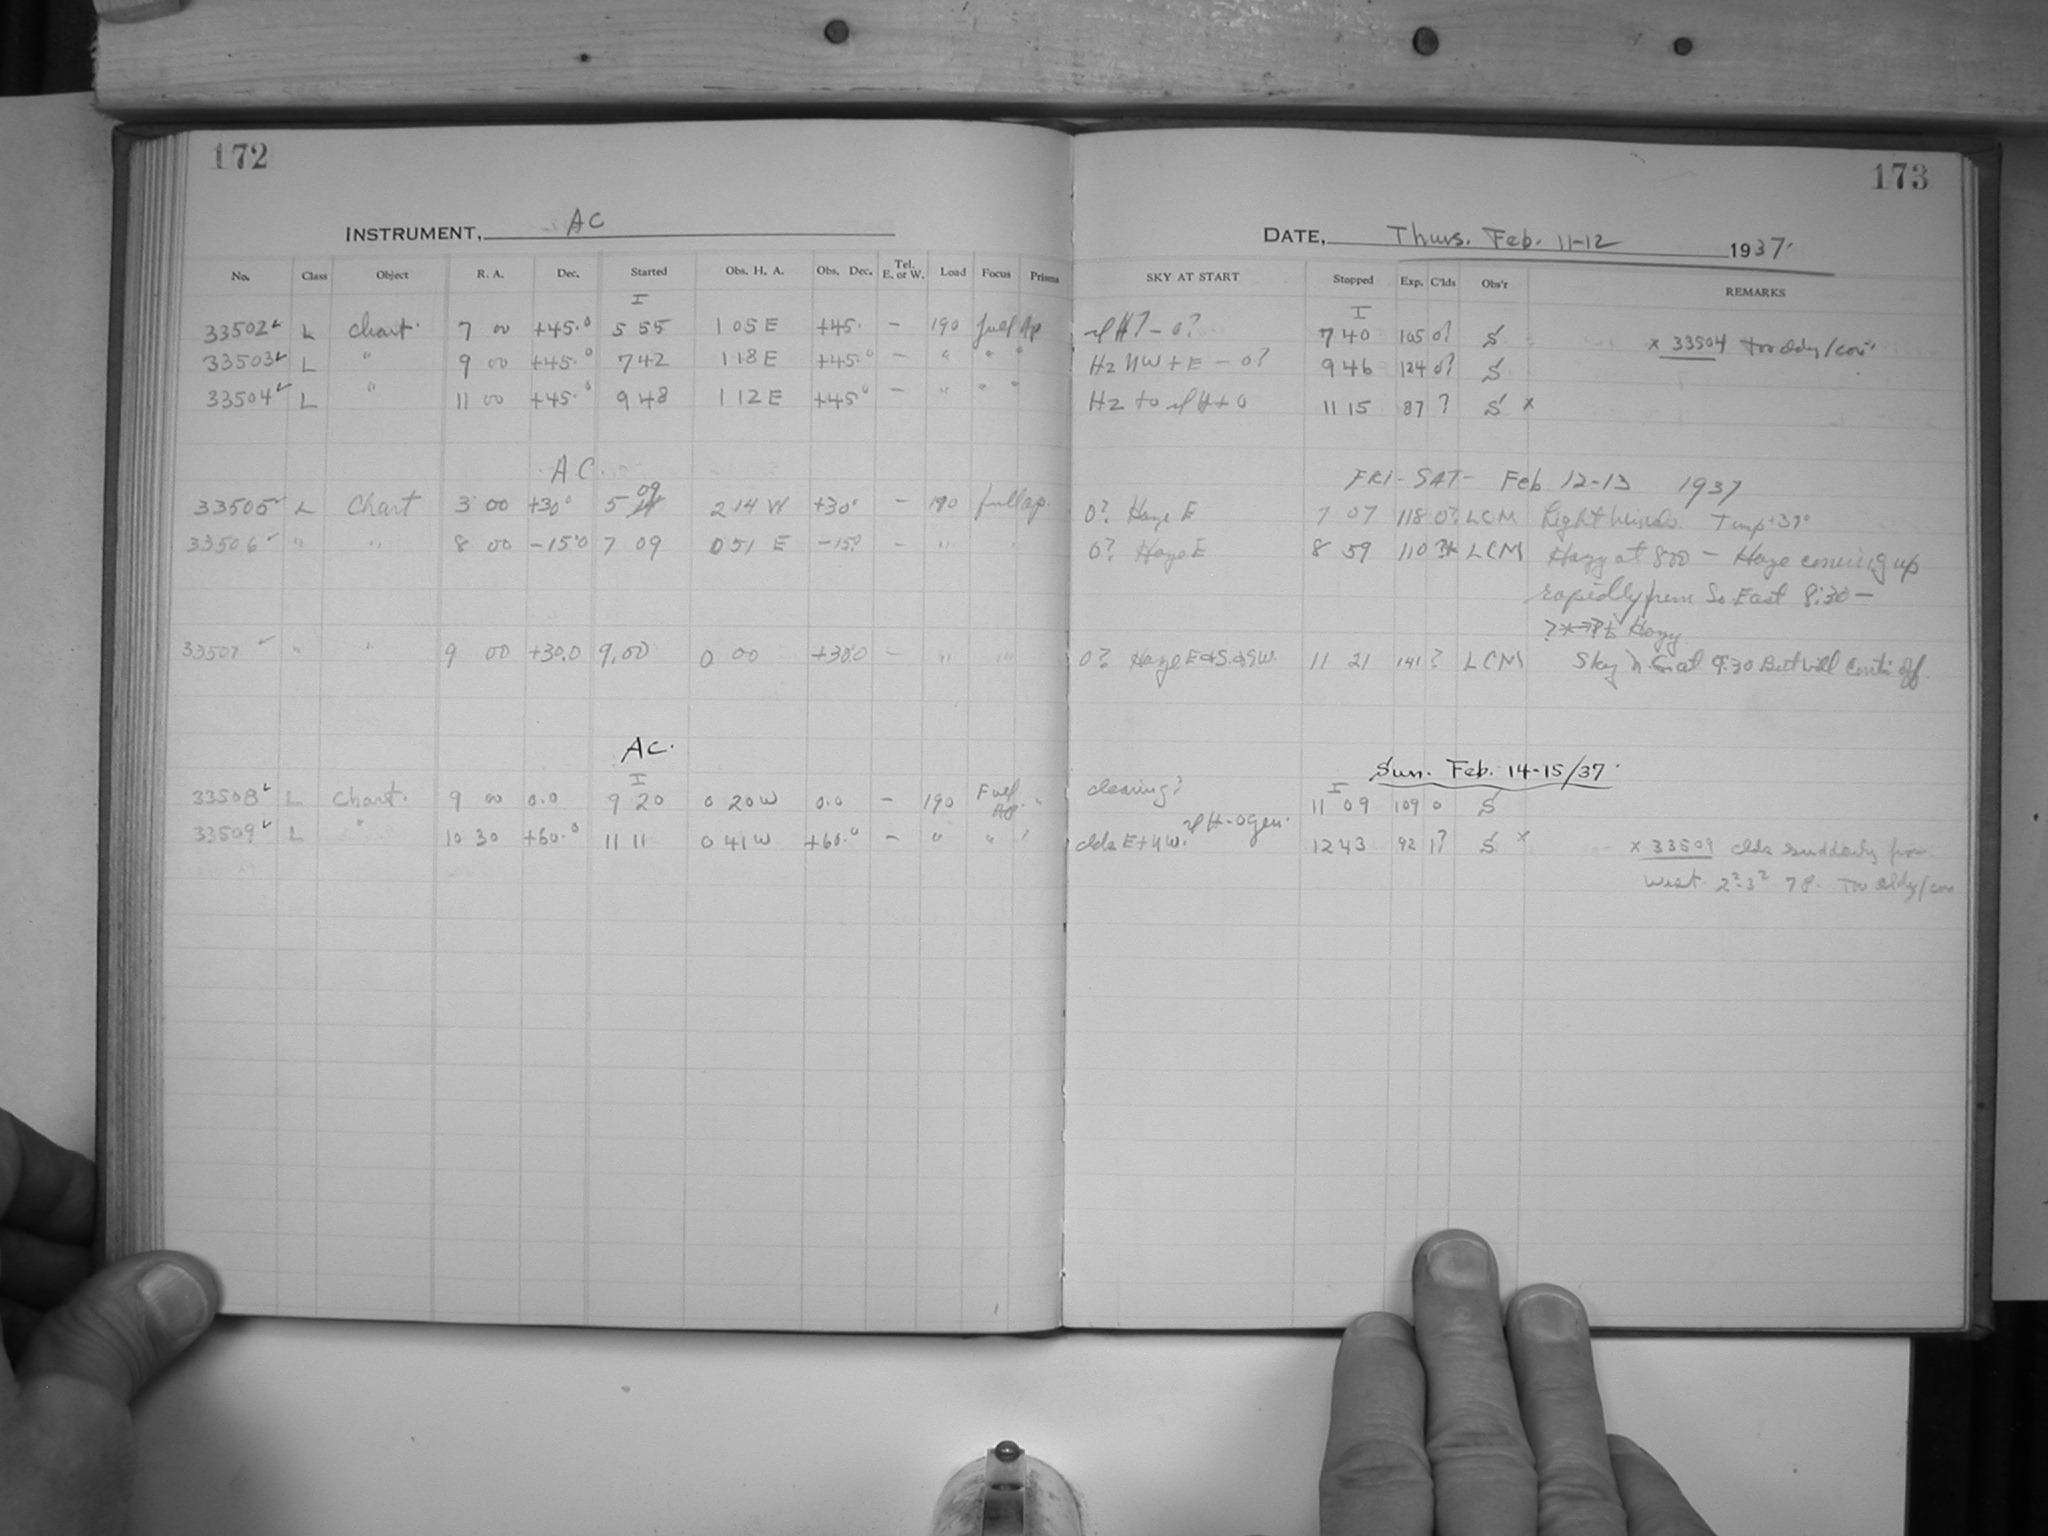 172
INSTRUMENT, AC
No. Class Object R. A. Dec. Started Obs. H. A. Obs. Dec. Tel. E. or W. Load Focus Prisms
I
33502 L Chart. 7 00 +45.° 5 55 1 05 E +45. - 190 full Ap
33503 L " 9 00 +45.° 7 42 1 18 E +45.° - " " "
33504 L " 11 00 +45.° 9 48 1 12 E +45° - " " "
AC.
33505 L Chart 3 00 +30° 5 09 2 14 W +30° - 190 full ap.
33506 " " 8 00 -15°0 7 09 0 51 E -15° - " "
33507 " " 9 00 +30.0 9.00 0 00 +30.0 - " "
AC.
I
33508 L Chart. 9 00 0.0 9 20 0 20 W 0.0 - 190 Full Ap. "
33509 L " 10 30 +60.° 11 11 0 41 W +60.° - " " "
173
DATE, Thurs. Feb. 11-12 1937.
SKY AT START Stopped Exp. C'lds Obs'r REMARKS
I
H? - 0? 7 40 105 0? S x 33504 Too cldy/con.
Hz NW + E - 0? 9 46 124 0? S
Hz to H + 0 11 15 87 ? S x
FRI - SAT - Feb 12-13 1937
0? Haze E 7 07 118 0? LCM Light winds. Temp +37°
0? Haze E 8 59 110 LCM Hazy at 8:00 - Haze coming up
rapidly from So East 8:30 -
Hazy
0? Haze E & S. & SW. 11 21 141 ? LCM Sky at 9:30 But will
Sun. Feb. 14-15/37.
I
clearing? 11 09 109 0 S
H - 0 gen.
clds E + NW. 12 43 92 1? S x x 33509 clds suddenly from
West. 2²-3² 78. Too cldy/con